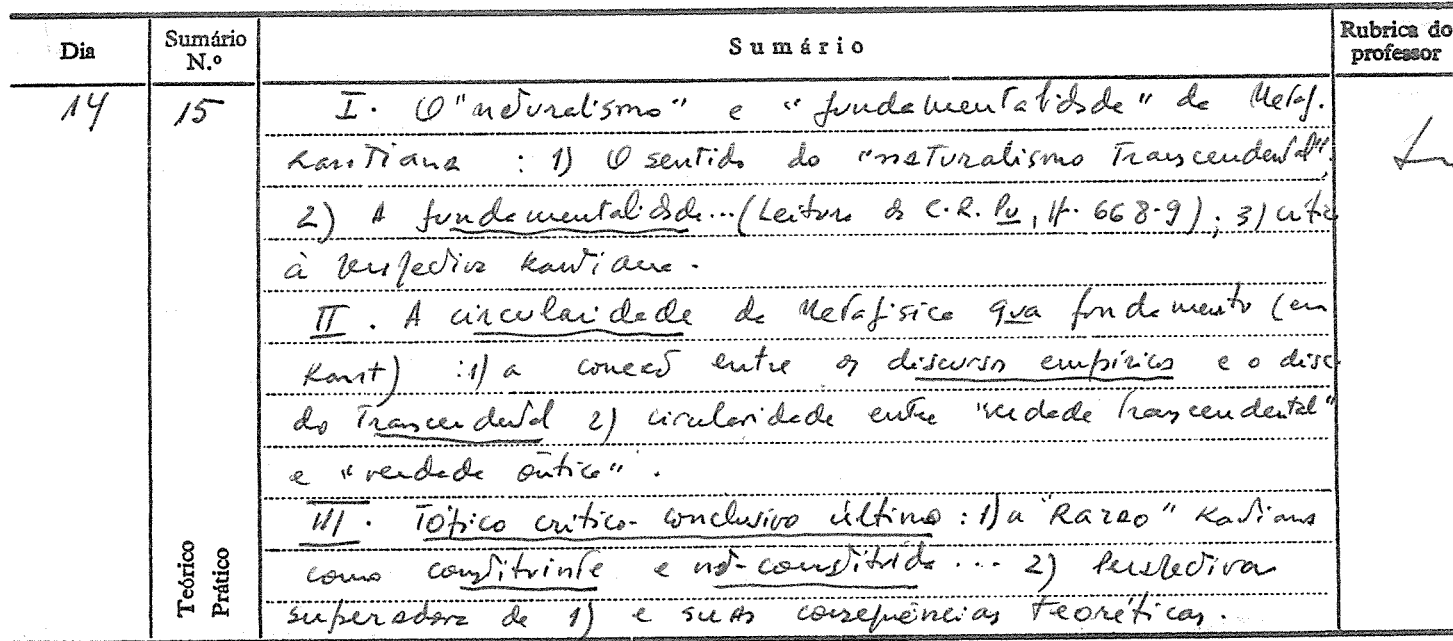 Dia Sumário N.º Sumário Rubrica do professor
14 15 I. O "naturalismo" e "fundamentalidade" da Metaf.
Kantiana : 1) O sentido do "naturalismo Transcendental".
2) A fundamentalidade... (Leitura da C.R. Pu, pp. 668-9); 3) critic
à perspectiva Kantiana.
II. A circularidade da Metafísica qua fundamento (em
Kant) : 1) a conexão entre o discurso empírico e o disc
do Transcendental 2) circularidade entre "verdade Transcendental"
e "verdade ôntica".
III. Tópico crítico-conclusivo último : 1) a "Razão" Kantiana
como constituinte e não-constituída ... 2) Perspectiva
superadora de 1) e suas consequências Teoréticas.
Teórico
Prático